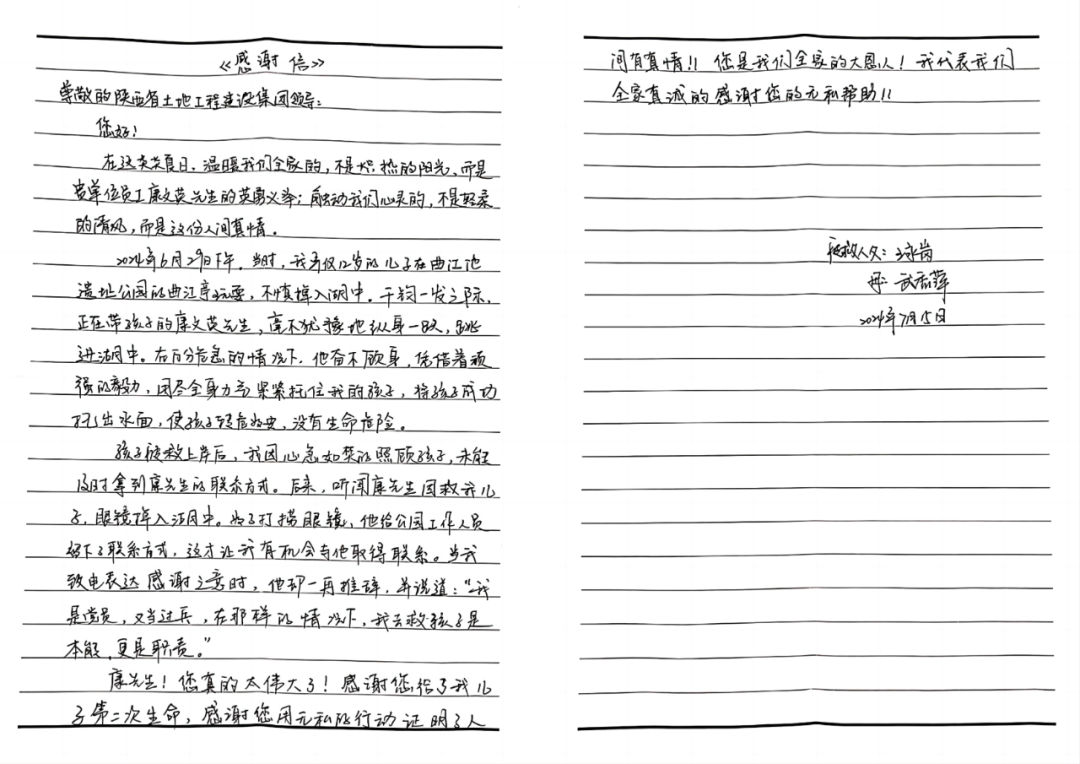 《感谢信》
尊敬的陕西省土地工程建设集团领导：
您好！
在这炎炎夏日，温暖我们全家的，不是炽热的阳光，而是
贵单位员工康文英先生的英勇义举；触动我们心灵的，不是轻柔
的清风，而是这份人间真情。
2024年6月29日下午，当时，我年仅12岁的儿子在曲江池
遗址公园的曲江亭玩耍，不慎掉入湖中。千钧一发之际，
正在带孩子的康文英先生，毫不犹豫地纵身一跃，跳
进湖中。在万分危急的情况下，他奋不顾身，凭借着顽
强的毅力，用尽全身力气紧紧托住我的孩子，将孩子成功
托出水面，使孩子转危为安，没有生命危险。
孩子被救上岸后，我因心急如焚的照顾孩子，未能
及时拿到康先生的联系方式。后来，听闻康先生因救我儿
子，眼镜掉入湖中。为了打捞眼镜，他给公园工作人员
留下了联系方式，这才让我有机会与他取得联系。当我
致电表达感谢之意时，他却一再推辞，并说道：“我
是党员，又当过兵，在那样的情况下，我去救孩子是
本能，更是职责。”
康先生！您真的太伟大了！感谢您给了我儿
子第二次生命，感谢您用无私的行动证明了人
间有真情！！您是我们全家的大恩人！我代表我们
全家真诚的感谢您的无私帮助！！
被救人父：
母：武
2024年7月5日